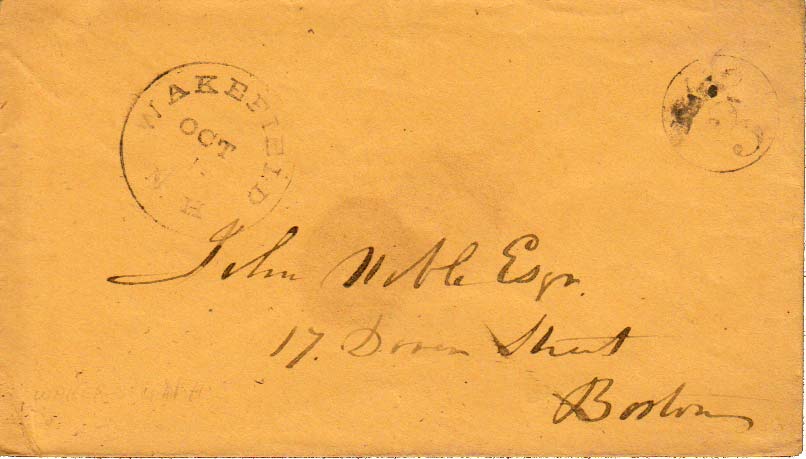 WAKEFIELD
N H
OCT
PAID
3
John Noble Esqr.
17. Dover Street
Boston